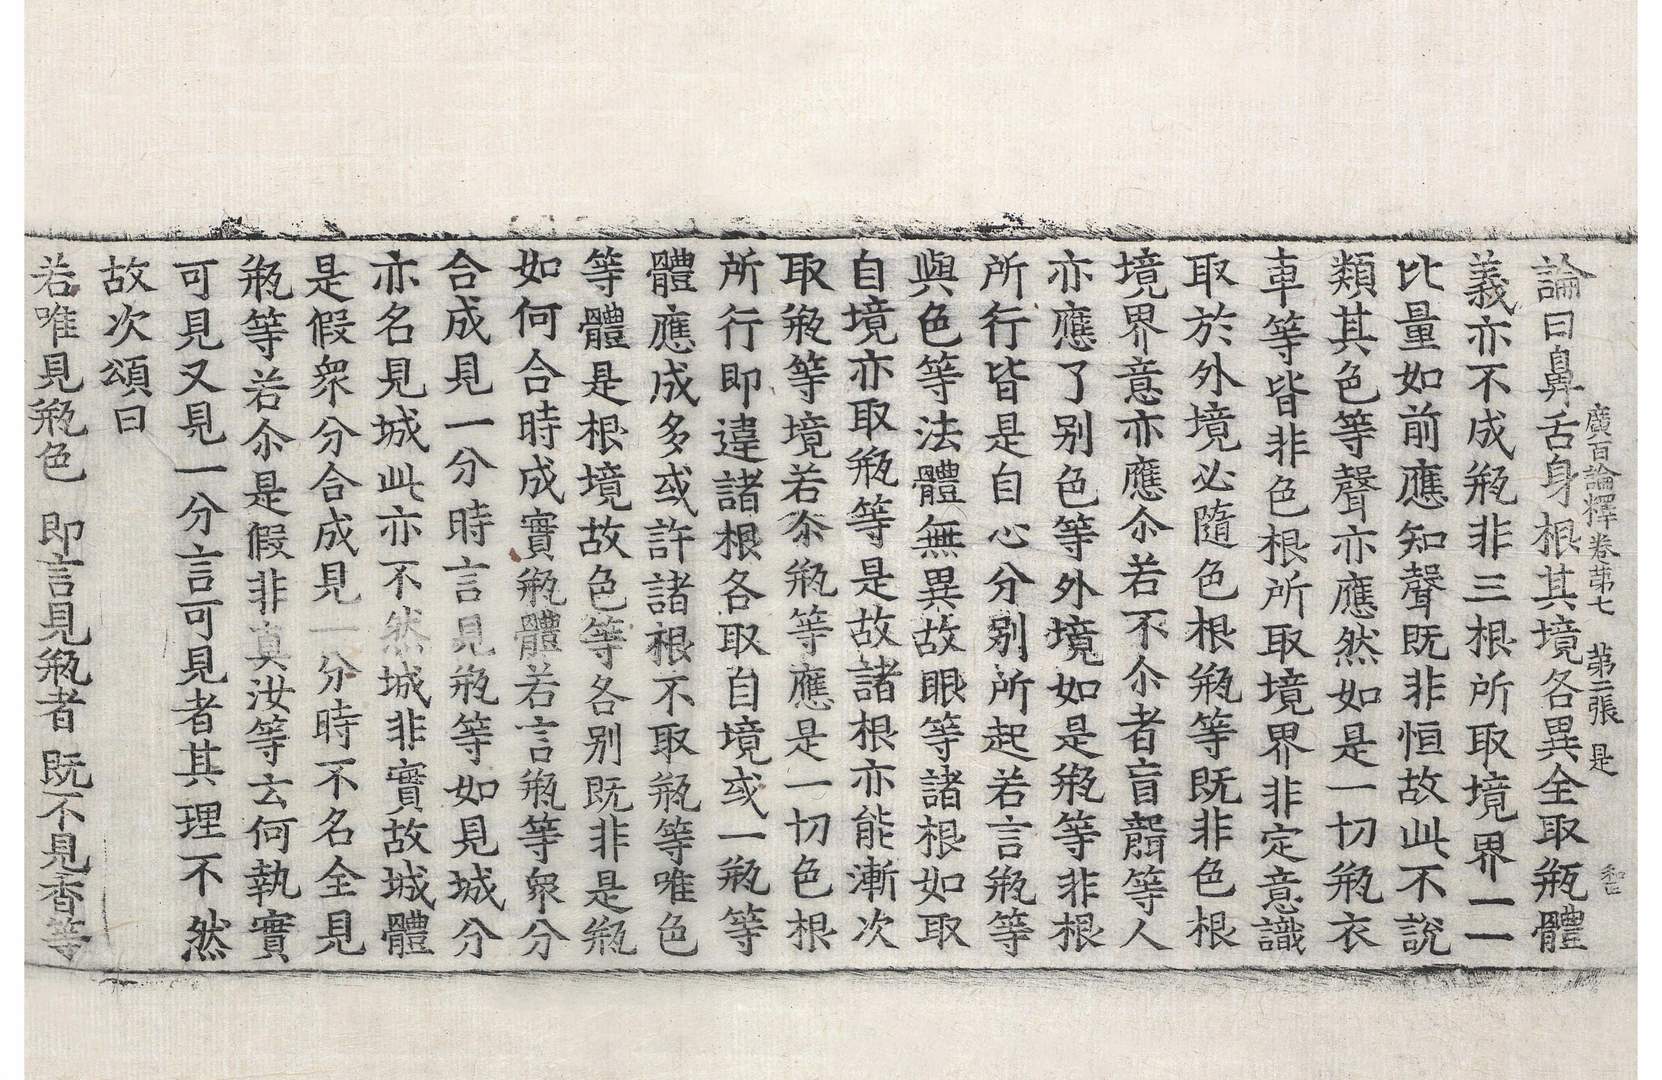 廣百論釋卷苐七 苐二張 是
論曰鼻舌身根其境各異全取瓶體
義亦不成瓶非三根所取境界一一
比量如前應知聲旣非恒故此不說
類其色等聲亦應然如是一切瓶衣
車等皆非色根所取境界非定意識
取於外境必隨色根瓶等旣非色根
境界意亦應尒若不尒者盲聾等人
亦應了别色等外境如是瓶等非根
所行皆是自心分别所起若言瓶等
與色等法體無異故眼等諸根如取
自境亦取瓶等是故諸根亦能漸次
取瓶等境若尒瓶等應是一切色根
所行即違諸根各取自境或一瓶等
體應成多或許諸根不取瓶等唯色
等體是根境故色等各别旣非是瓶
如何合時成實瓶體若言瓶等衆分
合成見一分時言見瓶等如見城分
亦名見城此亦不然城非實故城體
是假衆分合成見一分時不名全見
瓶等若尒是假非真汝等云何執實
可見又見一分言可見者其理不然
故次頌曰
若唯見瓶色 即言見瓶者 旣不見香等